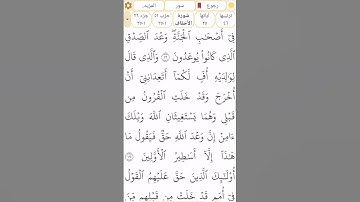 رجوع سور المزيد
ترتيبها آياتها سورة حزب ٥١ جزء ٢٦
٤٦ ٣٥ الأحقاف
فِىٓ أَصْحَٰبِ ٱلْجَنَّةِ ۖ وَعْدَ ٱلصِّدْقِ
ٱلَّذِى كَانُوا۟ يُوعَدُونَ ١٦ وَٱلَّذِى قَالَ
لِوَٰلِدَيْهِ أُفٍّ لَّكُمَآ أَتَعِدَانِنِىٓ أَنْ
أُخْرَجَ وَقَدْ خَلَتِ ٱلْقُرُونُ مِن
قَبْلِى وَهُمَا يَسْتَغِيثَانِ ٱللَّهَ وَيْلَكَ
ءَامِنْ إِنَّ وَعْدَ ٱللَّهِ حَقٌّ فَيَقُولُ مَا
هَٰذَآ إِلَّآ أَسَٰطِيرُ ٱلْأَوَّلِينَ ١٧
أُو۟لَٰٓئِكَ ٱلَّذِينَ حَقَّ عَلَيْهِمُ ٱلْقَوْلُ
فِىٓ أُمَمٍ قَدْ خَلَتْ مِن قَبْلِهِم مِّنَ